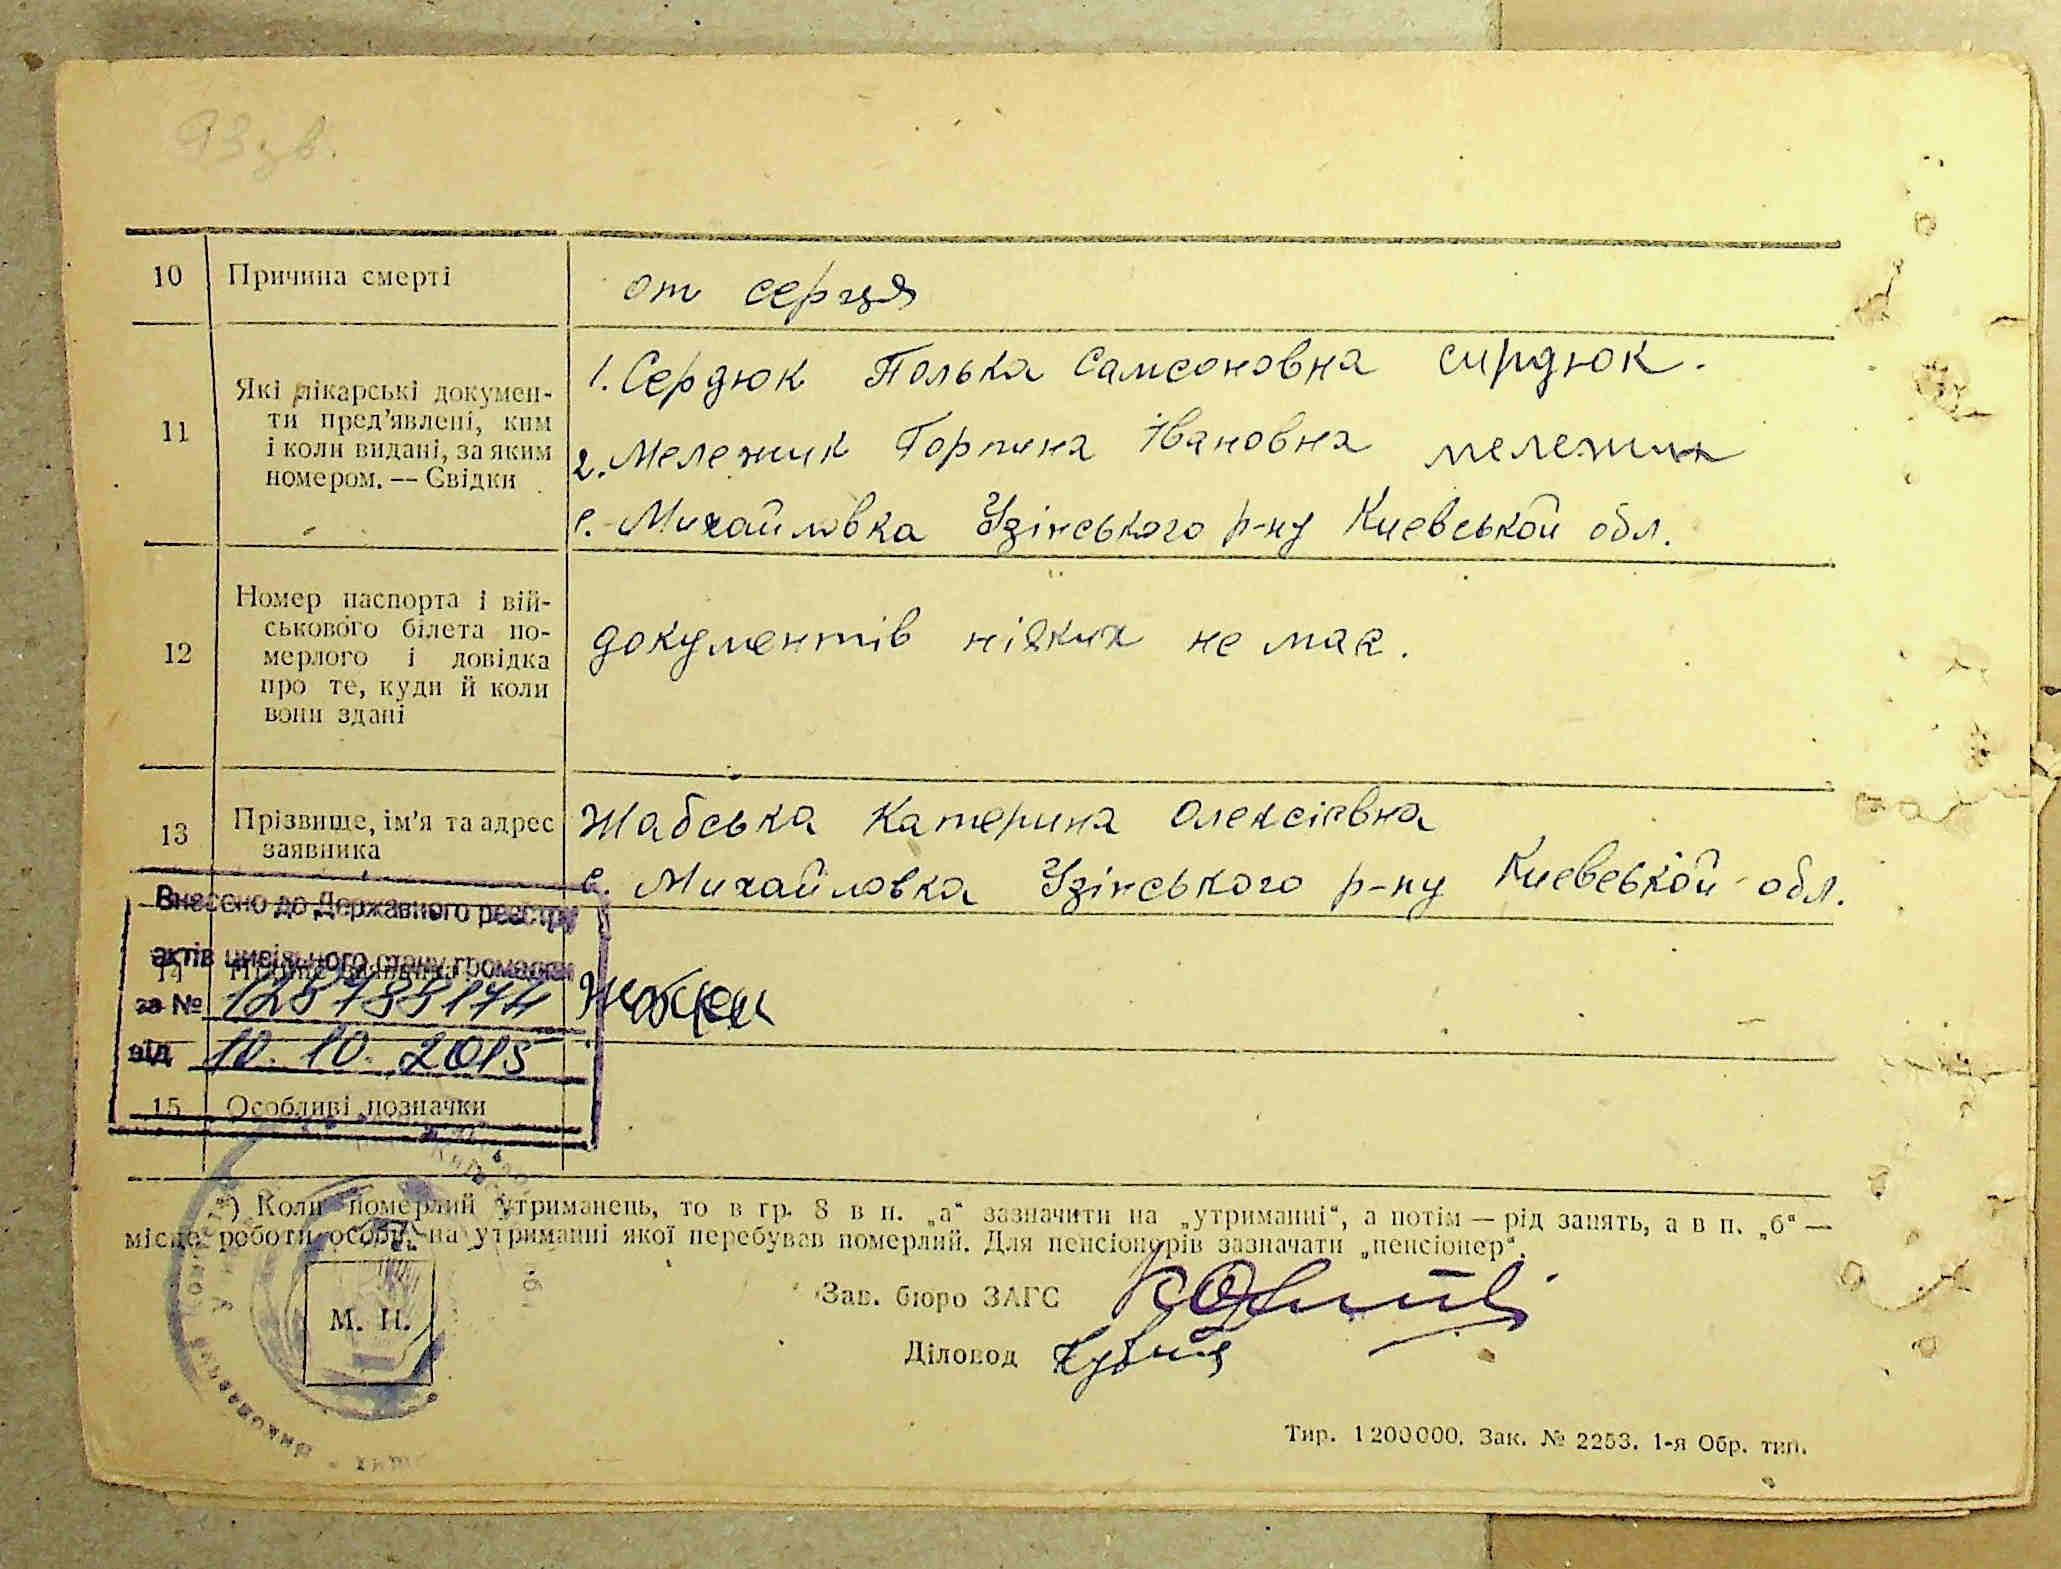 93 зв.
10 Причина смерті от серця
11 Які лікарські докумен-
ти пред'явлені, ким
і коли видані, за яким
номером. — Свідки
1. Сердюк Полька Самсоновна сирдюк.
2. Мележик Горпина Івановна мележик
с. Михайловка Узінського р-ну Киевськой обл.
12 Номер паспорта і вій-
ськового білета по-
мерлого і довідка
про те, куди й коли
вони здані
документів ніяких не мае.
13 Прізвище, ім'я та адрес
заявника
Жабська Катерина Олексіевна
с. Михайловка Узінського р-ну Киевськой обл.
Внесено до Державного реєстру
актів цивільного стану громадян
14 Підпис заявника
за №
від 10.10.2015
15 Особливі позначки
*) Коли померлий утриманець, то в гр. 8 в п. „а“ зазначити на „утриманні“, а потім — рід занять, а в п. „б“ —
місце роботи особи, на утриманні якої перебував померлий. Для пенсіонерів зазначати „пенсіонер“.
Зав. бюро ЗАГС
М. П.
Діловод
Тир. 1200000. Зак. № 2253. 1-я Обр. тип.